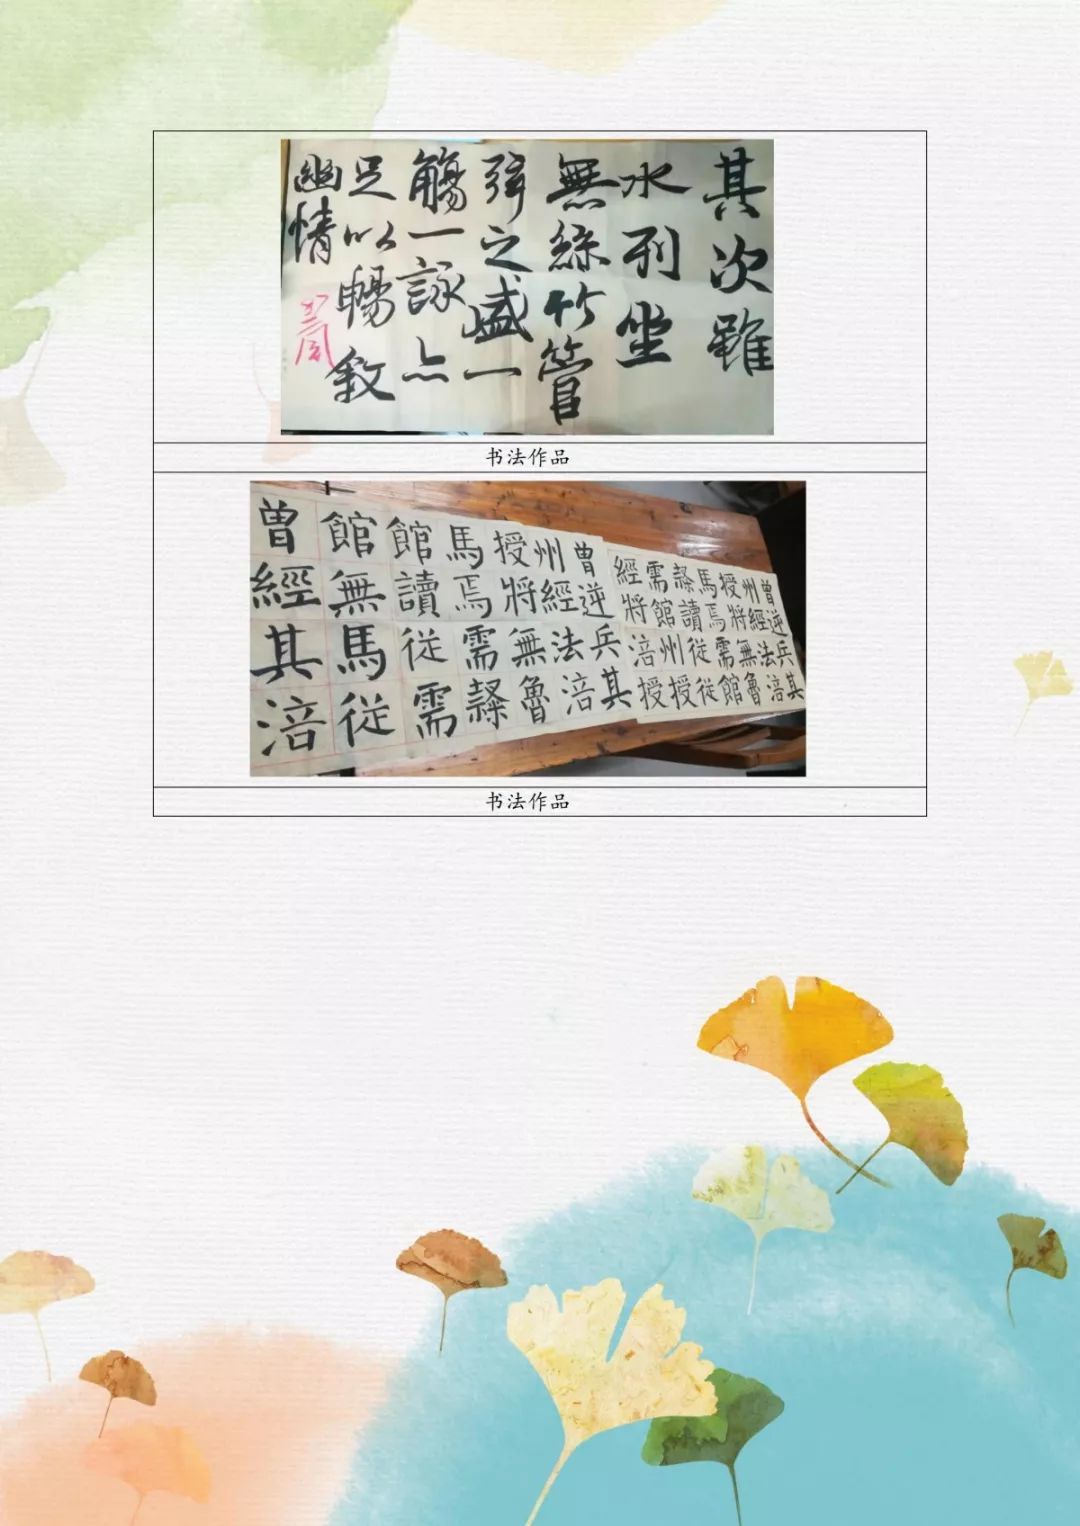 其次雖
水列坐
無絲竹管
弦之盛一
觴一詠亦
足以暢敘
幽情
书法作品
曾逆兵其
州經法涪
授將無魯
馬焉需館
讀從從
需館州授
經將涪授
曾逆兵其
州經法涪
授將無魯
馬焉需
館讀從需
館無馬從
曾經其涪
书法作品